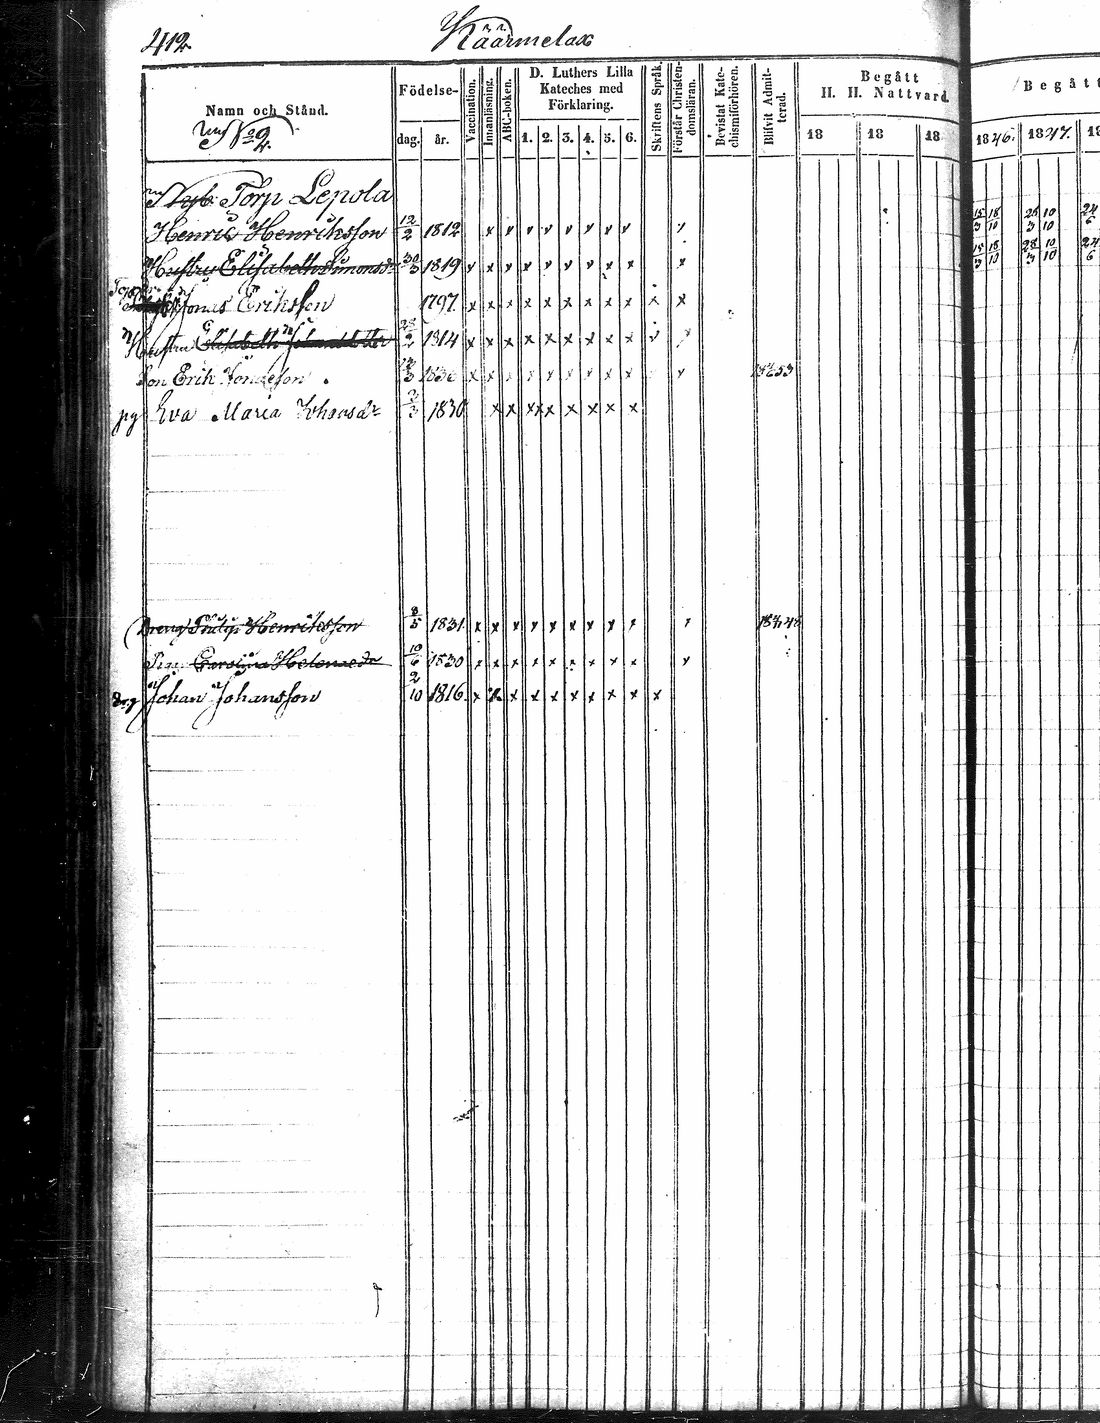 412 Käärmelax
Namn och Stånd. Födelse- dag. år. Vaccination. Innanläsning. ABC-boken. D. Luthers Lilla Kateches med Förklaring. 1. 2. 3. 4. 5. 6. Skriftens Språk. Förstår Christendomsläran. Bevistat Katechismiförhören. Blifvit Admitterad. Begått H. H. Nattvard. 18 18 18 Begått 1846. 1847. 18
No 2.
Torp Lepola
Henric Henriksson 12/2 1812 v v v v v v v v v 15/3 18/10 28/3 10/10 24/6
Hustru Elisabeth Simonsdr 30/3 1819 v x x x x x x x x x x 15/3 18/10 28/3 10/10 24/6
Jonas Eriksson 1797. x x x x x x x x x x x
Hustru Elisabeth 1814 x x x x x x x x x
Son Erik 1853
pg Eva Maria 3/3 1830 x x x x x x x x
Dreng Philip Henriksson 8/5 1831 x x x x x x x x x
Pin. Carolina Helena 10/6 1830 x x x x x x x x x
Drg Johan Johansson 2/10 1816. x x x x x x x x x x